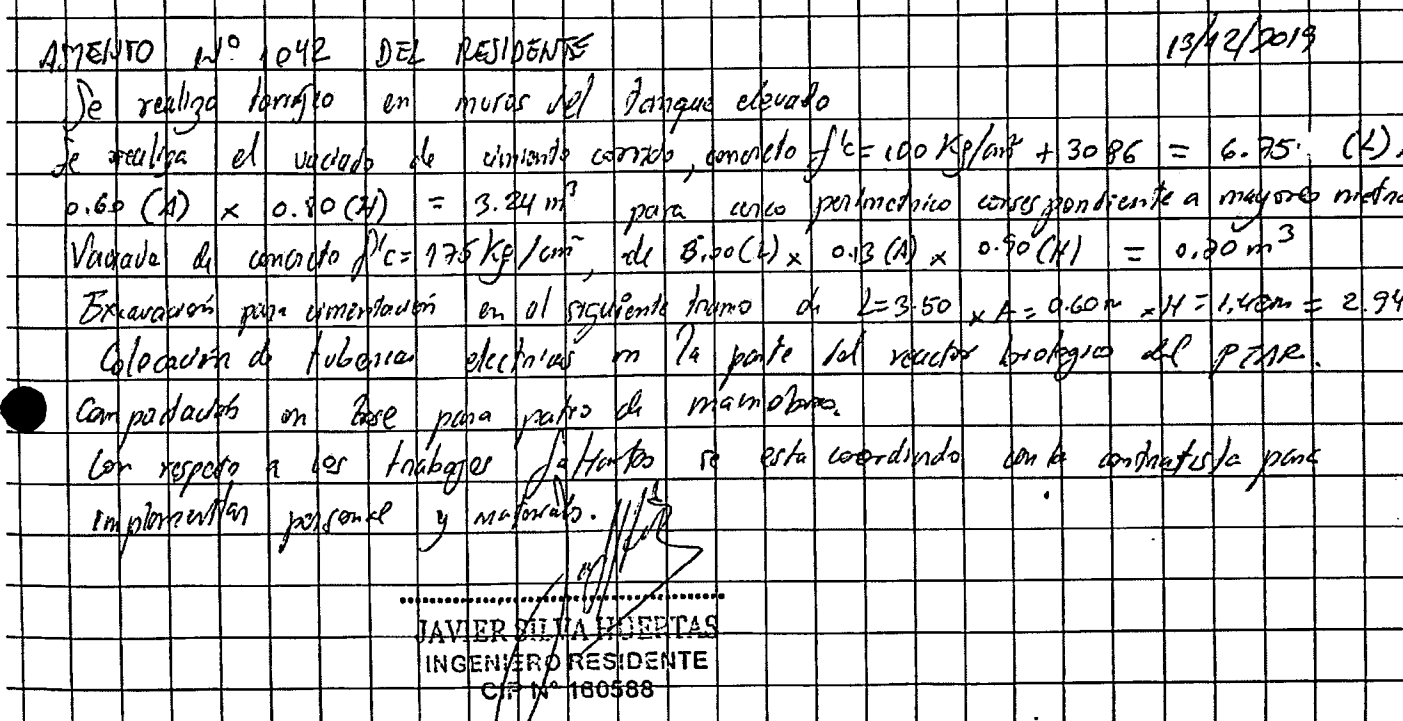 ASIENTO N° 1042 DEL RESIDENTE 13/12/2019
Se realiza tarrajeo en muros del tanque elevado
Se realiza el vaciado de cimiento corrido, concreto f'c=100 Kg/cm² + 30%G = 6.75 (L) x
0.60 (A) x 0.80 (H) = 3.24 m³ para cerco perimetrico correspondiente a mayores metra
Vaciado de concreto f'c=175 Kg/cm², de (L) x 0.13 (A) x (H) = m³
Excavación para cimentación en el siguiente tramo de L=3.50 x A=0.60m x H=1.40m = 2.94
Colocación de tuberias electricas en la parte del reactor biologico del PTAR.
Compactación en base para patio de maniobras.
Con respecto a los trabajos faltantes se esta coordindo con la contratista para
implementar personal y materiales.
JAVIER SILVA HUERTAS
INGENIERO RESIDENTE
CIP N° 160588